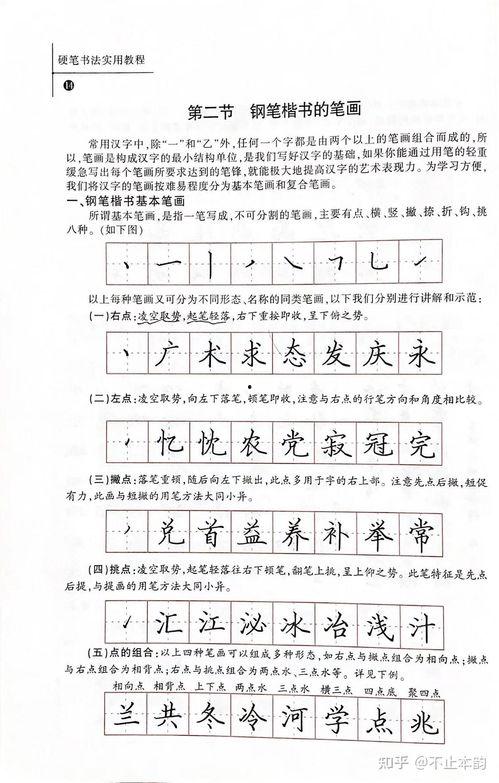 硬笔书法实用教程
14
第二节 钢笔楷书的笔画
常用汉字中,除“一”和“乙”外,任何一个字都是由两个以上的笔画组合而成的,所
以,笔画是构成汉字的最小结构单位,是我们写好汉字的基础,如果你能通过用笔的轻重
缓急写出每个笔画所要求达到的笔锋,就能极大地提高汉字的艺术表现力。为学习方便,
我们将汉字的笔画按难易程度分为基本笔画和复合笔画。
一、钢笔楷书基本笔画
所谓基本笔画,是指一笔写成,不可分割的笔画,主要有点、横、竖、撇、捺、折、钩、挑
八种。(如下图)
丶 一 丨 ノ ㇏ ㇕ 乚 ㇀
以上每种笔画又可分为不同形态、名称的同类笔画,以下我们分别进行讲解和示范:
(一)右点:凌空取势,起笔轻落,右下重按即收,呈下俯之势。
丶 广 术 求 态 发 庆 永
(二)左点:凌空取势,向左下落笔,顿笔即收,注意与右点的行笔方向和角度相比较。
忆 忱 农 党 寂 冠 完
(三)撇点:落笔重顿,随后向左下撇出,此点多用于字的右上部。注意先点后撇,短促
有力,此画与短撇的用笔方法大同小异。
兑 首 益 养 补 举 常
(四)挑点:凌空取势,起笔轻落往右下顿笔,翻笔上挑,呈上仰之势。此笔特征是先点
后提,与提画的用笔方法大同小异。
汇 江 泌 冰 冶 浅 汁
(五)点的组合:以上四种笔画可以组成多种形态,如右点与撇点组合为相向点;撇点
与右点组合为相背点;右点与挑点组合为两点水、三点水等。详见下例。
相向点 相背点 上下点 两点水 三点水 横三点 四点底 聚四点
兰 共 冬 冷 河 学 点 兆
知乎 @不止本韵